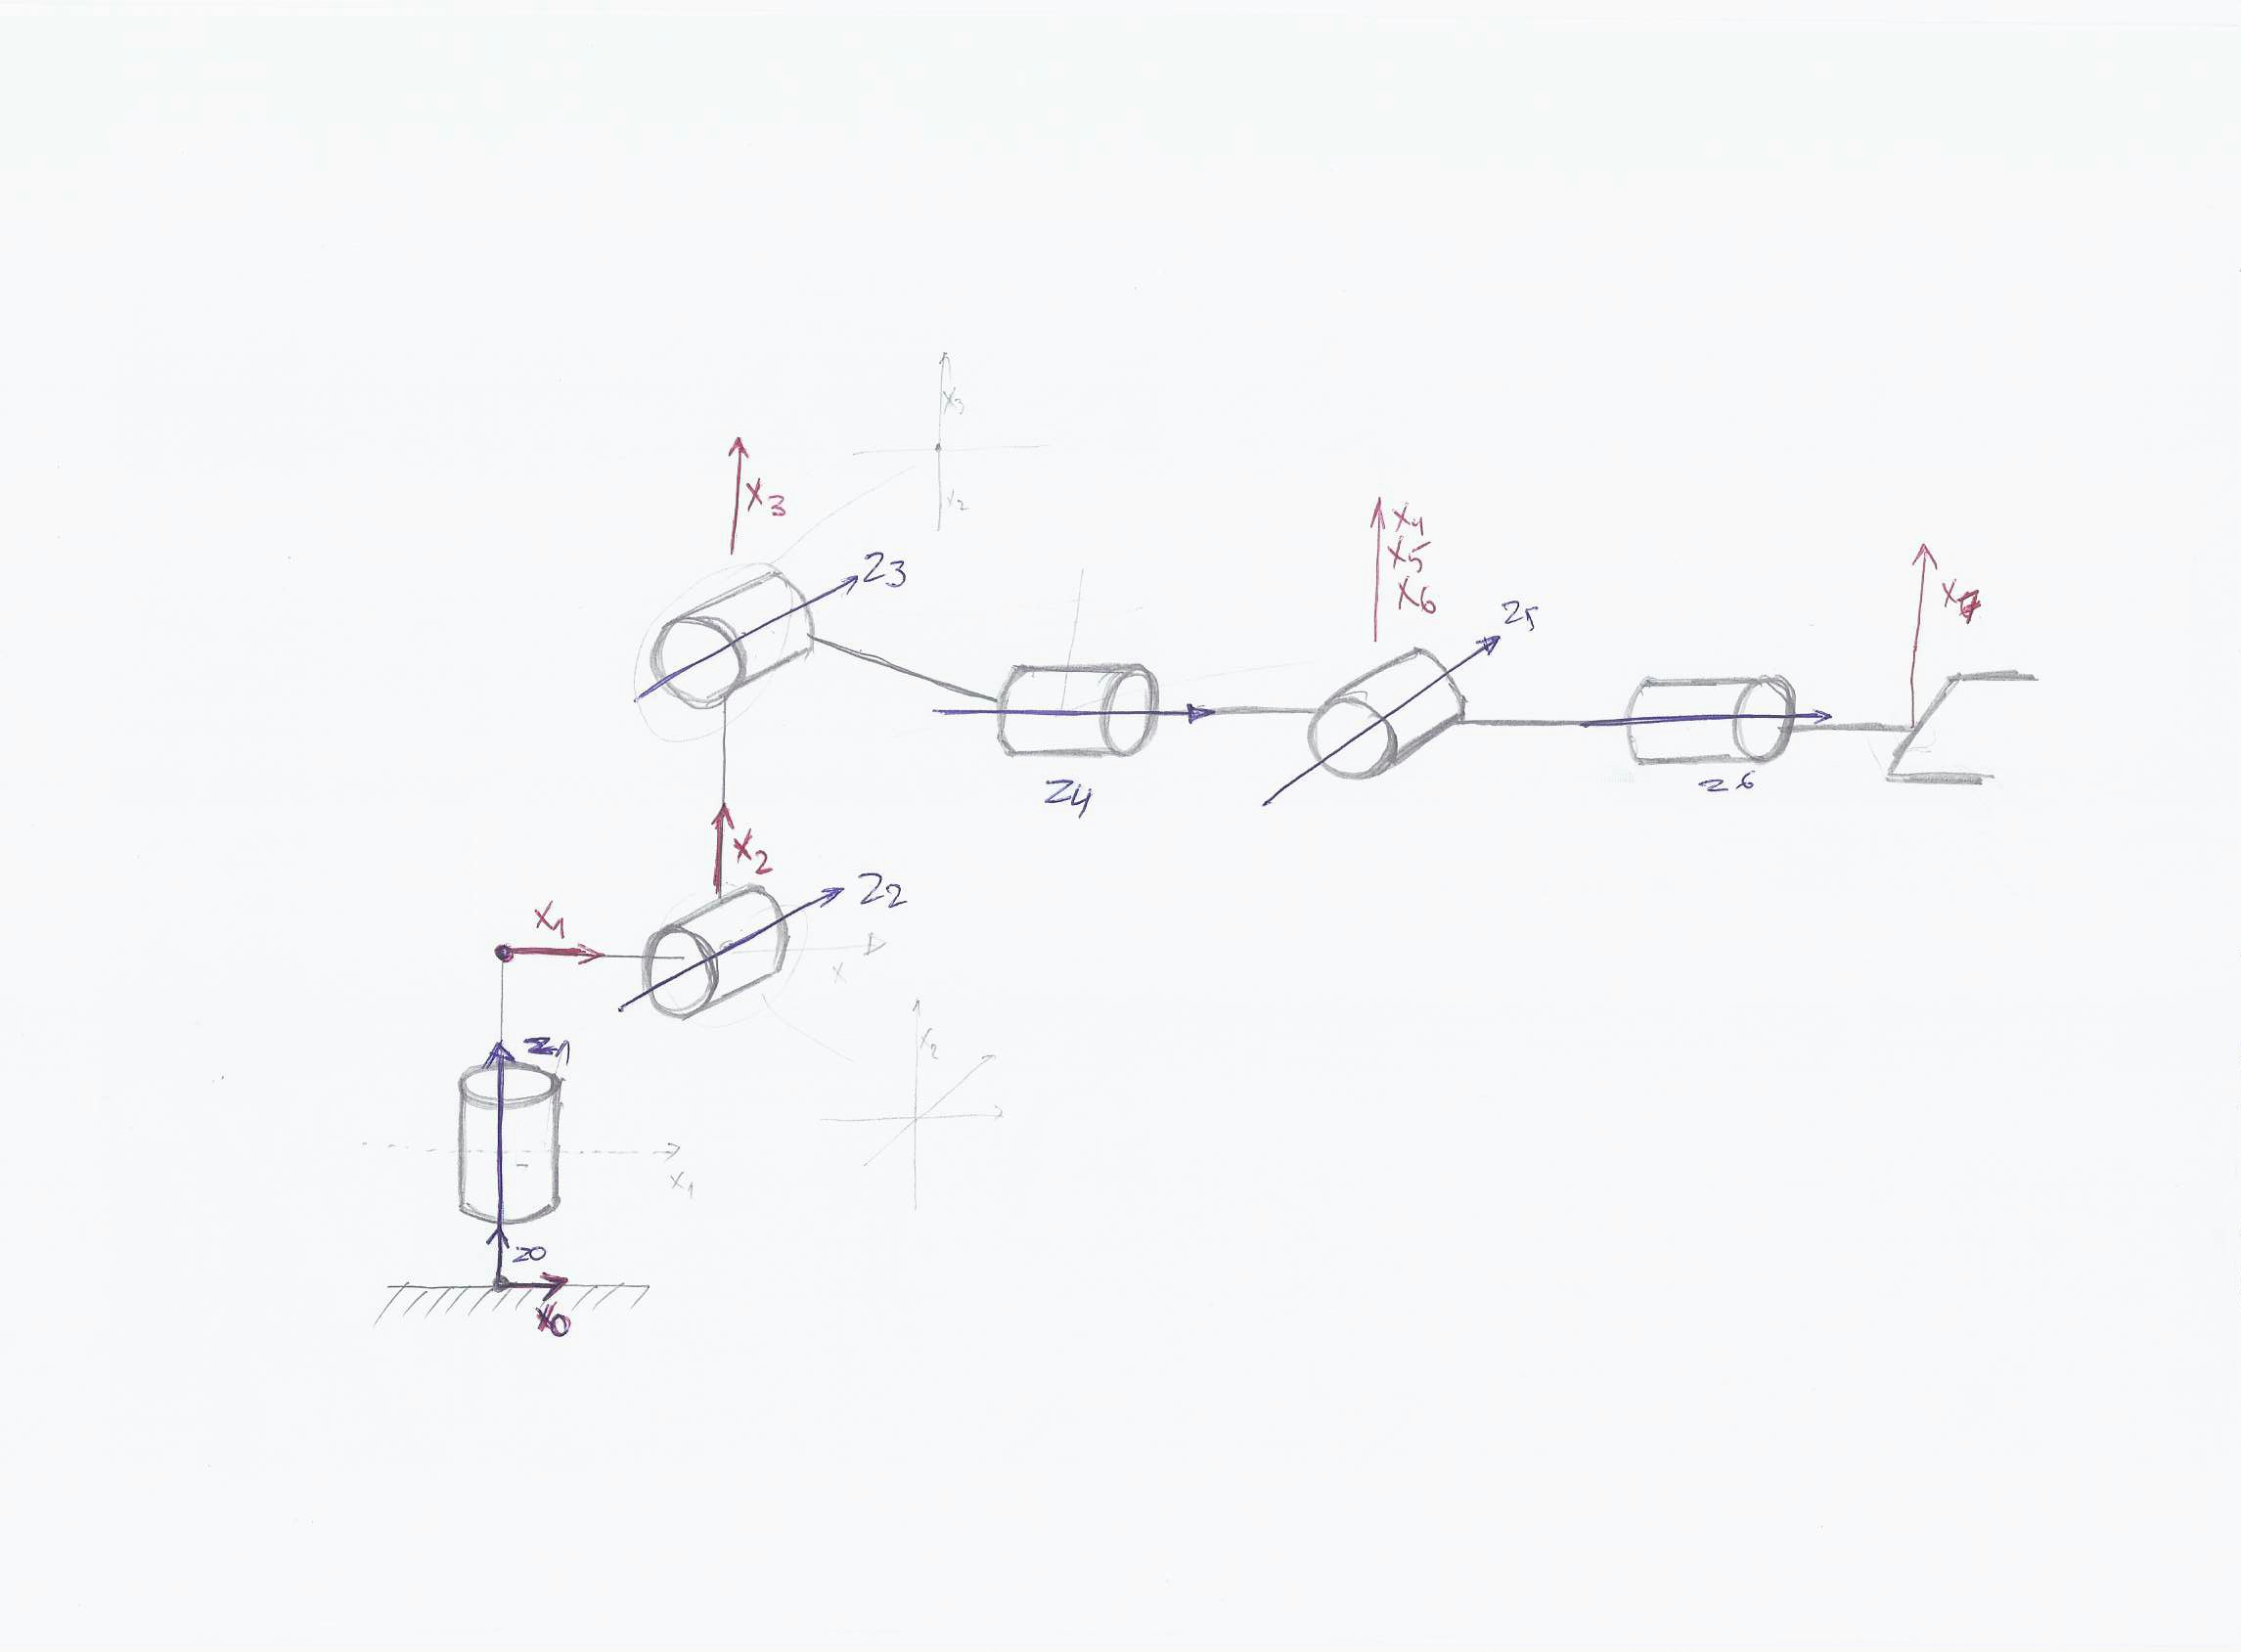 X3
X2
X3
Z3
X4
X5
X6
Z5
Z4
Z6
X2
Z2
X1
X
X2
Z1
X1
Z0
X0